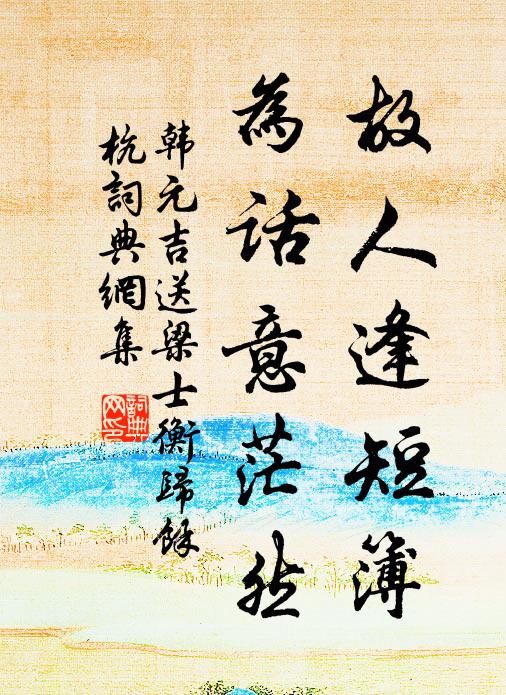 故人逢短簿
為话意茫然
韩元吉送梁士衡歸餘
杭詞典網集
詞典網印